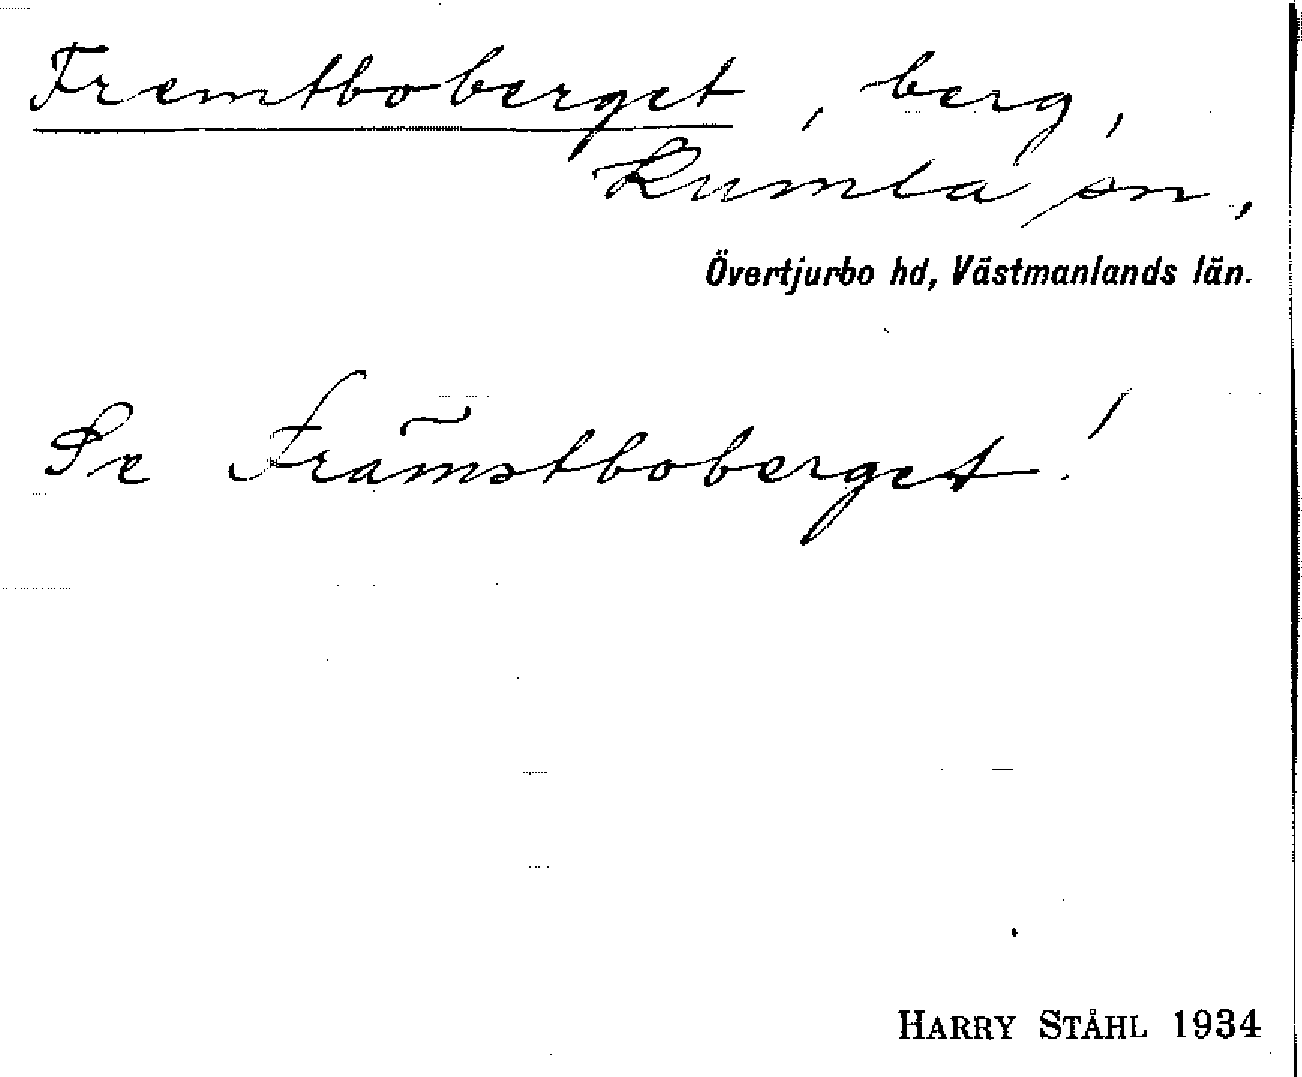 Fremtboberget, berg,
Kumla sn,
Övertjurbo hd, Västmanlands län.
Se Främstboberget!
HARRY STÅHL 1934